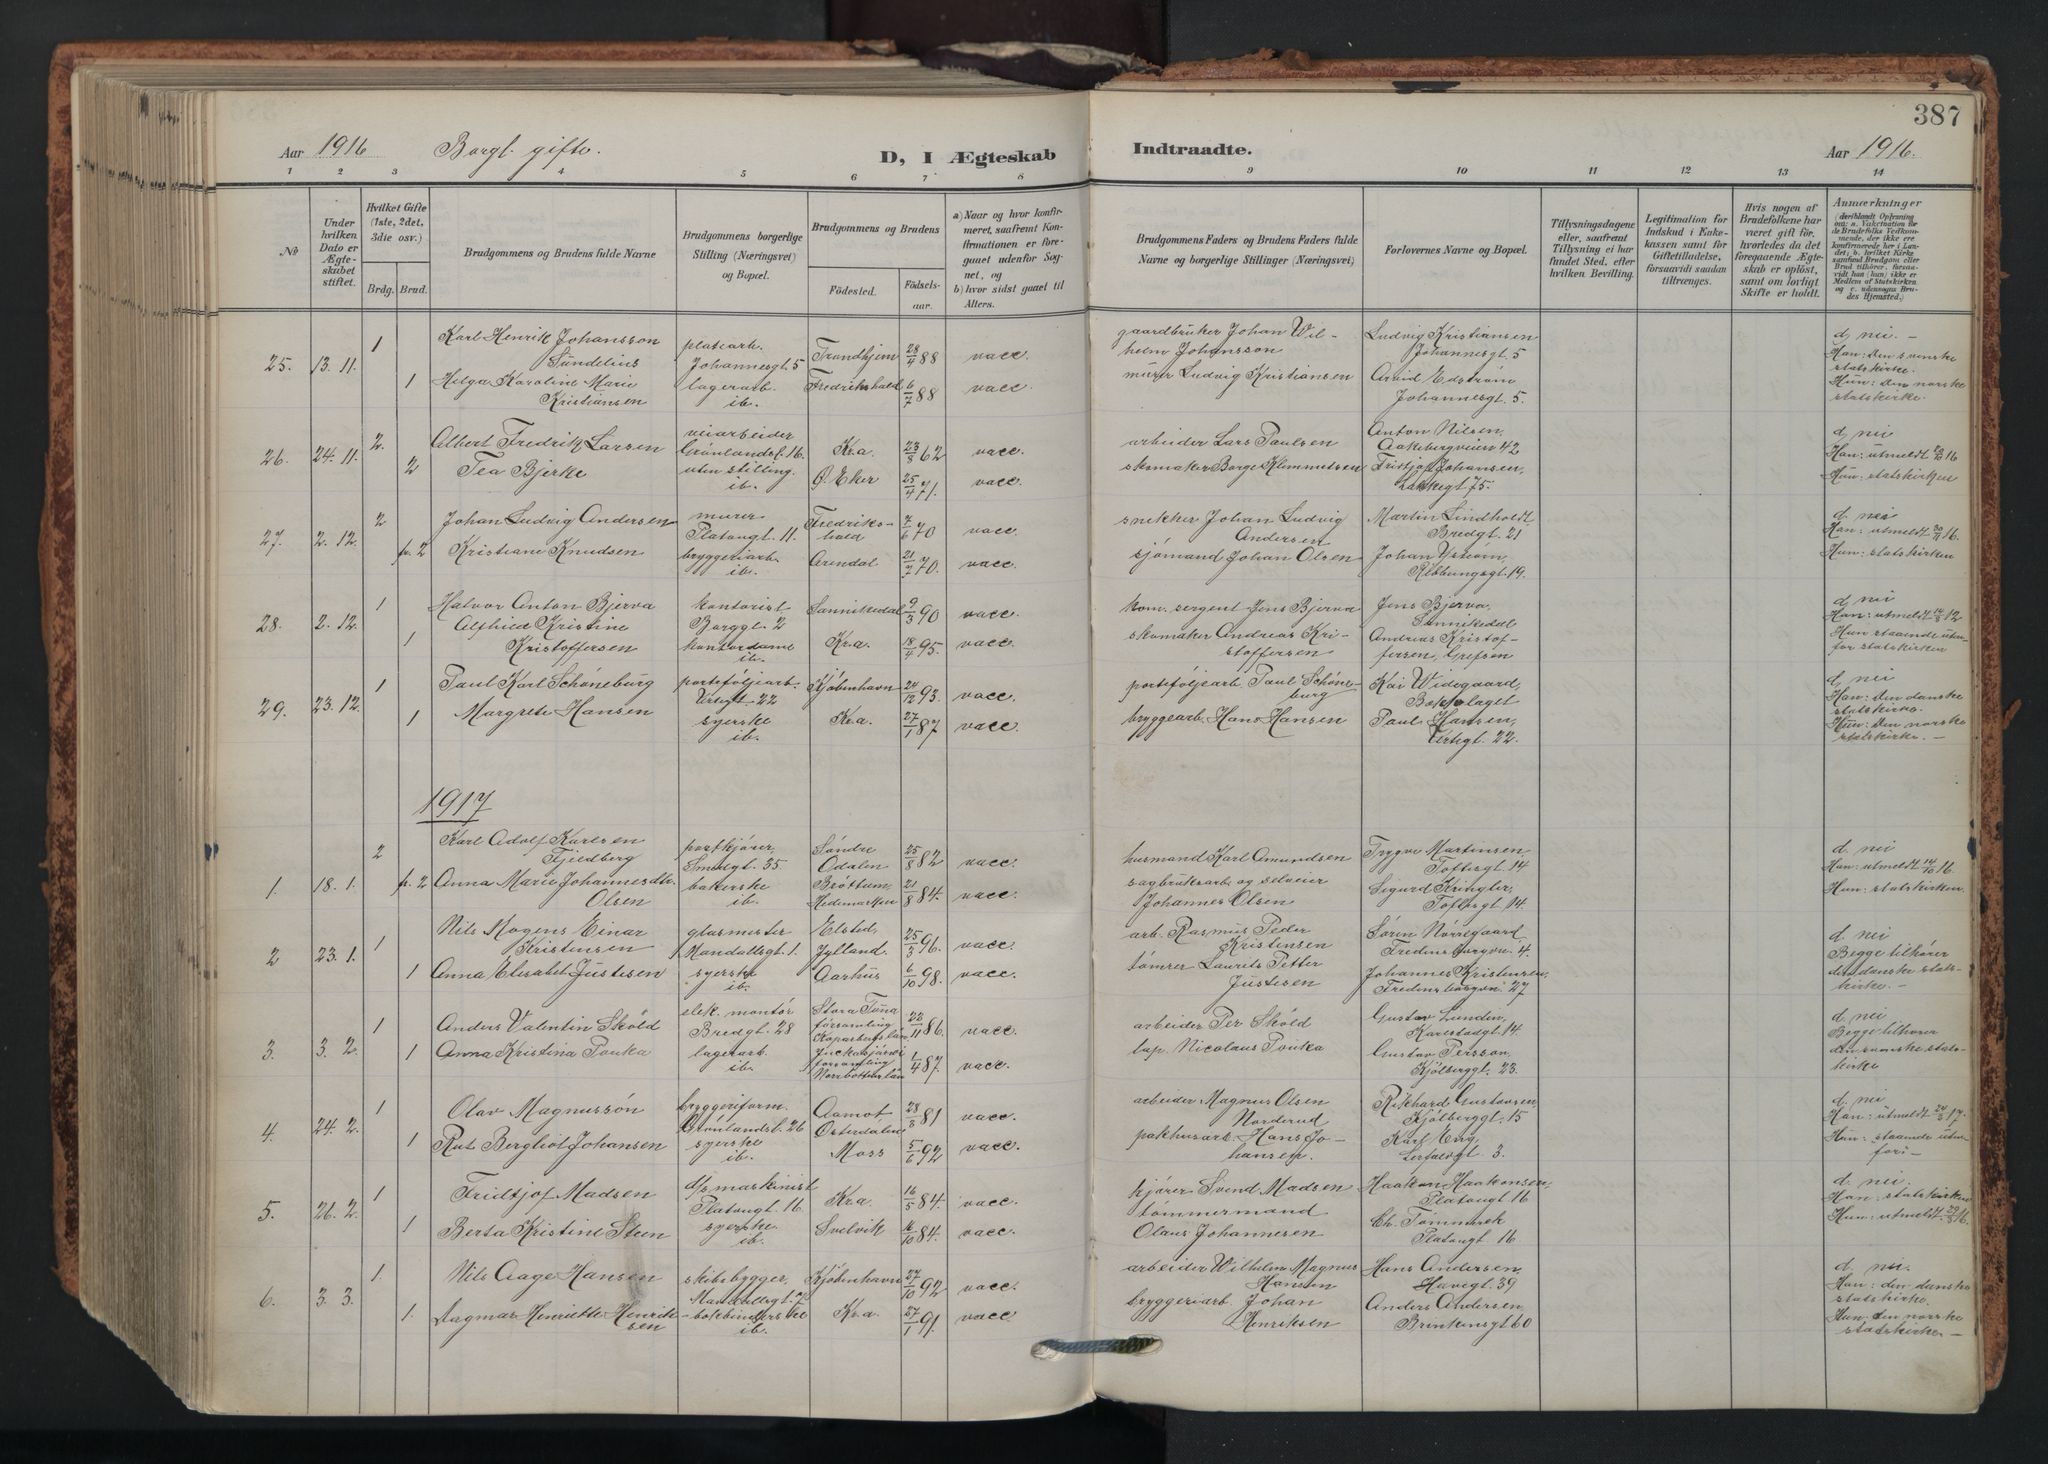 387
Aar 1916 Borgl. gifte. D, I Ægteskab Indtraadte. Aar 1916.
1 2 3 4 5 6 7 8 9 10 11 12 13 14
No
Under hvilken Dato er Ægteskabet stiftet.
Hvilket Gifte (1ste, 2det, 3die osv.)
Brdg. Brud.
Brudgommens og Brudens fulde Navne
Brudgommens borgerlige Stilling (Næringsvei) og Bopæl.
Brudgommens og Brudens
Födested. Födselsaar.
a) Naar og hvor konfirmeret, saafremt Konfirmationen er foregaaet udenfor Sognet, og
b) hvor sidst gaaet til Alters.
Brudgommens Faders og Brudens Faders fulde Navne og borgerlige Stillinger (Næringsvei)
Forlovernes Navne og Bopæl.
Tillysningsdagene eller, saafremt Tillysning ei har fundet Sted, efter hvilken Bevilling.
Legitimation for Indskud i Enkekassen samt for Giftetilladelse, forsaavidt saadan tiltrænges.
Hvis nogen af Brudefolkene har været gift för, hvorledes da det foregaaende Ægteskab er oplöst, samt om lovligt Skifte er holdt.
Anmærkninger
(deriblandt Oplysning om: a. Vakcination for de Brudefolks Vedkommende, der ikke ere konfirmerede her i Landet; b. hvilket Kirkesamfund Brudgom eller Brud tilhörer, forsaavidt han (hun) ikke er Medlem af Statskirken og c. udensogns Brudes Hjemsted.)
25. 13. 11. 1 Karl Henrik Johansson Sundelius platearb. Johannesgt. 5 Trondhjem 28/4 88 vacc. gaardbruker Johan Wilhelm Johansson Ludvig Kristiansen Johannesgt. 5 d, nei. - Han: Den svenske statskirke.
1 Helga Karoline Marie Kristiansen lagerarb. ib. Fredrikshald 6/7 88 vacc murer Ludvig Kristiansen Arvid Edström Johannesgt. 5. Hun: den norske statskirke.
26. 24. 11. 2. Albert Fredrik Larsen veiarbeider Grønlandsl. 16. Kr.a. 23/8 62 vacc. arbeider Lars Paulsen Anton Nilsen, Aakebergveien 42 d, nei Han: utmeldt 16
2 Tea Bjerke uten stilling. ib. Ø. Eker 25/4 71. vacc. skomaker Borge Klemmetsen Fristjof Johansen, Lakkegt. 75. Hun: statskirken
27. 2. 12. 2 Johan Ludvig Andersen murer Platougt. 11. Fredrikshald 7/6 70 vacc snekker Johan Ludvig Andersen Martin Lindholdt, Bredgt. 21 d. nei Han: utmeldt 30/11 16.
fr. 2 Kristiane Knudsen bryggeriarb. ib. Arendal 21/7 70. vacc. sjömand Johan Olsen Johan Ystrom, Ribbungsgt. 19. Hun: statskirken
28. 2. 12. 1 Halvor Anton Bjerva kontorist Borggt. 2 Sannikedal 9/3 90 vacc. kom. sergent Jens Bjerva Jens Bjerva, Sannikedal d, nei Han: utmeldt 14/8 12
1 Alfhild Kristine Kristoffersen kontordame ib. Kr.a. 18/4 95. vacc. skomaker Andreas Kristoffersen Andreas Kristoffersen, Grefsen Hun staaende utenfor statskirken
29. 23. 12. 1 Paul Karl Schöneburg porteföljearb. Urtegt. 22 Kjöbenhavn 24/12 93. vacc. porteföljearb. Paul Schöneburg Kai Widegaard, Bækkelaget d, nei Han: den danske statskirke.
1 Margrete Hansen syerske ib. Kr.a. 27/1 87 vacc. bryggearb. Hans Hansen Paul Hansen, Urtegt. 22. Hun: den norske statskirke. -
1917
1. 18. 1. 2 Karl Adolf Karlsen Fjeldberg postkjörer, Smedgt. 35 Söndre Odalen 25/8 82 vacc. husmand Karl Amundsen Trygve Martinsen, Toftesgt. 14 d. nei Han: utmeldt 14/10 16.
fr. 2 Anna Marie Johannesdtr. Olsen bakerske ib. Bröttum, Hedemarken 21/8 84. vacc. sagbruksarb og selveier Johannes Olsen Sigurd Kringler, Toftesgt. 14. Hun: statskirken.
2 23. 1. 1 Nils Mogens Einar Kristensen glasmester Mandallsgt. 1. Elsted, Jylland. 25/3 96. vacc. arb. Rasmus Peder Kristensen Sören Nörregaard Fredensborgvn. 4. d. nei Begge tilhörer den danske statskirke. -
1 Anna Elisabet Justesen syerske ib. Aarhus 6/10 98. vacc. tömrer Laurits Petter Justesen Johannes Kristensen, Fredensborgvn. 27
3. 3. 2. 1 Anders Valentin Sköld elek. montör Bredgt. 28 Stora Tuna församling Koparbergs län 23/11 86. vacc. arbeider Per Sköld Gustav Linden, Karlstadgt. 14. d. nei Begge tilhörer den svenske statskirke
1 Anna Kristina Pouka lagerarb. ib. Juckasjärvi församling Norrbottens län 1/4 87. vacc. lap. Nicolaus Pouka Gustav Persson, Kjölberggt. 23.
4. 24. 2. 1 Olav Magnussön bryggeriform. Grönlandsl. 26 Aamot Österdalen 28/3 81 vacc. arbeider Magnus Olsen Norderud Rikhard Gustavsen, Kjölberggt. 15 d. nei Han: utmeldt 17.
1 Rut Bergliot Johansen syerske ib. Moss 5/6 92 vacc. pakhusarb. Hans Johansen. Karl Berg, Leirfaldsgt. 3. Hun: staaende utenfor: -
5. 26. 2. 1 Fridtjof Madsen d/s maskinist Platougt. 16 Kr.a. 16/5 84. vacc. kjörer Svend Madsen Haakon Haakonsen, Platougt. 16 d. nei. Han: statskirken
1 Berta Kristine Steen syerske ib. Svelvik 16/10 84. vacc. tömmermand Olaus Johannesen Ch. Tömmerek Platougt. 16 Hun: utmeldt. 16.
6. 3. 3. 1. Nils Aage Hansen skibsbygger, Mandallsgt. 7 Kjöbenhavn 27/10 92 vacc. arbeider Wilhelm Magnus Hansen Hans Andersen, Havegt. 39 d. nei. Han: den danske statskirke.
1. Dagmar Henriette Henriksen bokbinderske ib. Kr.a 27/1 91. vacc bryggeriarb. Johan Henriksen Anders Andersen, Brinkensgt 60 Hun: den norske statskirke -